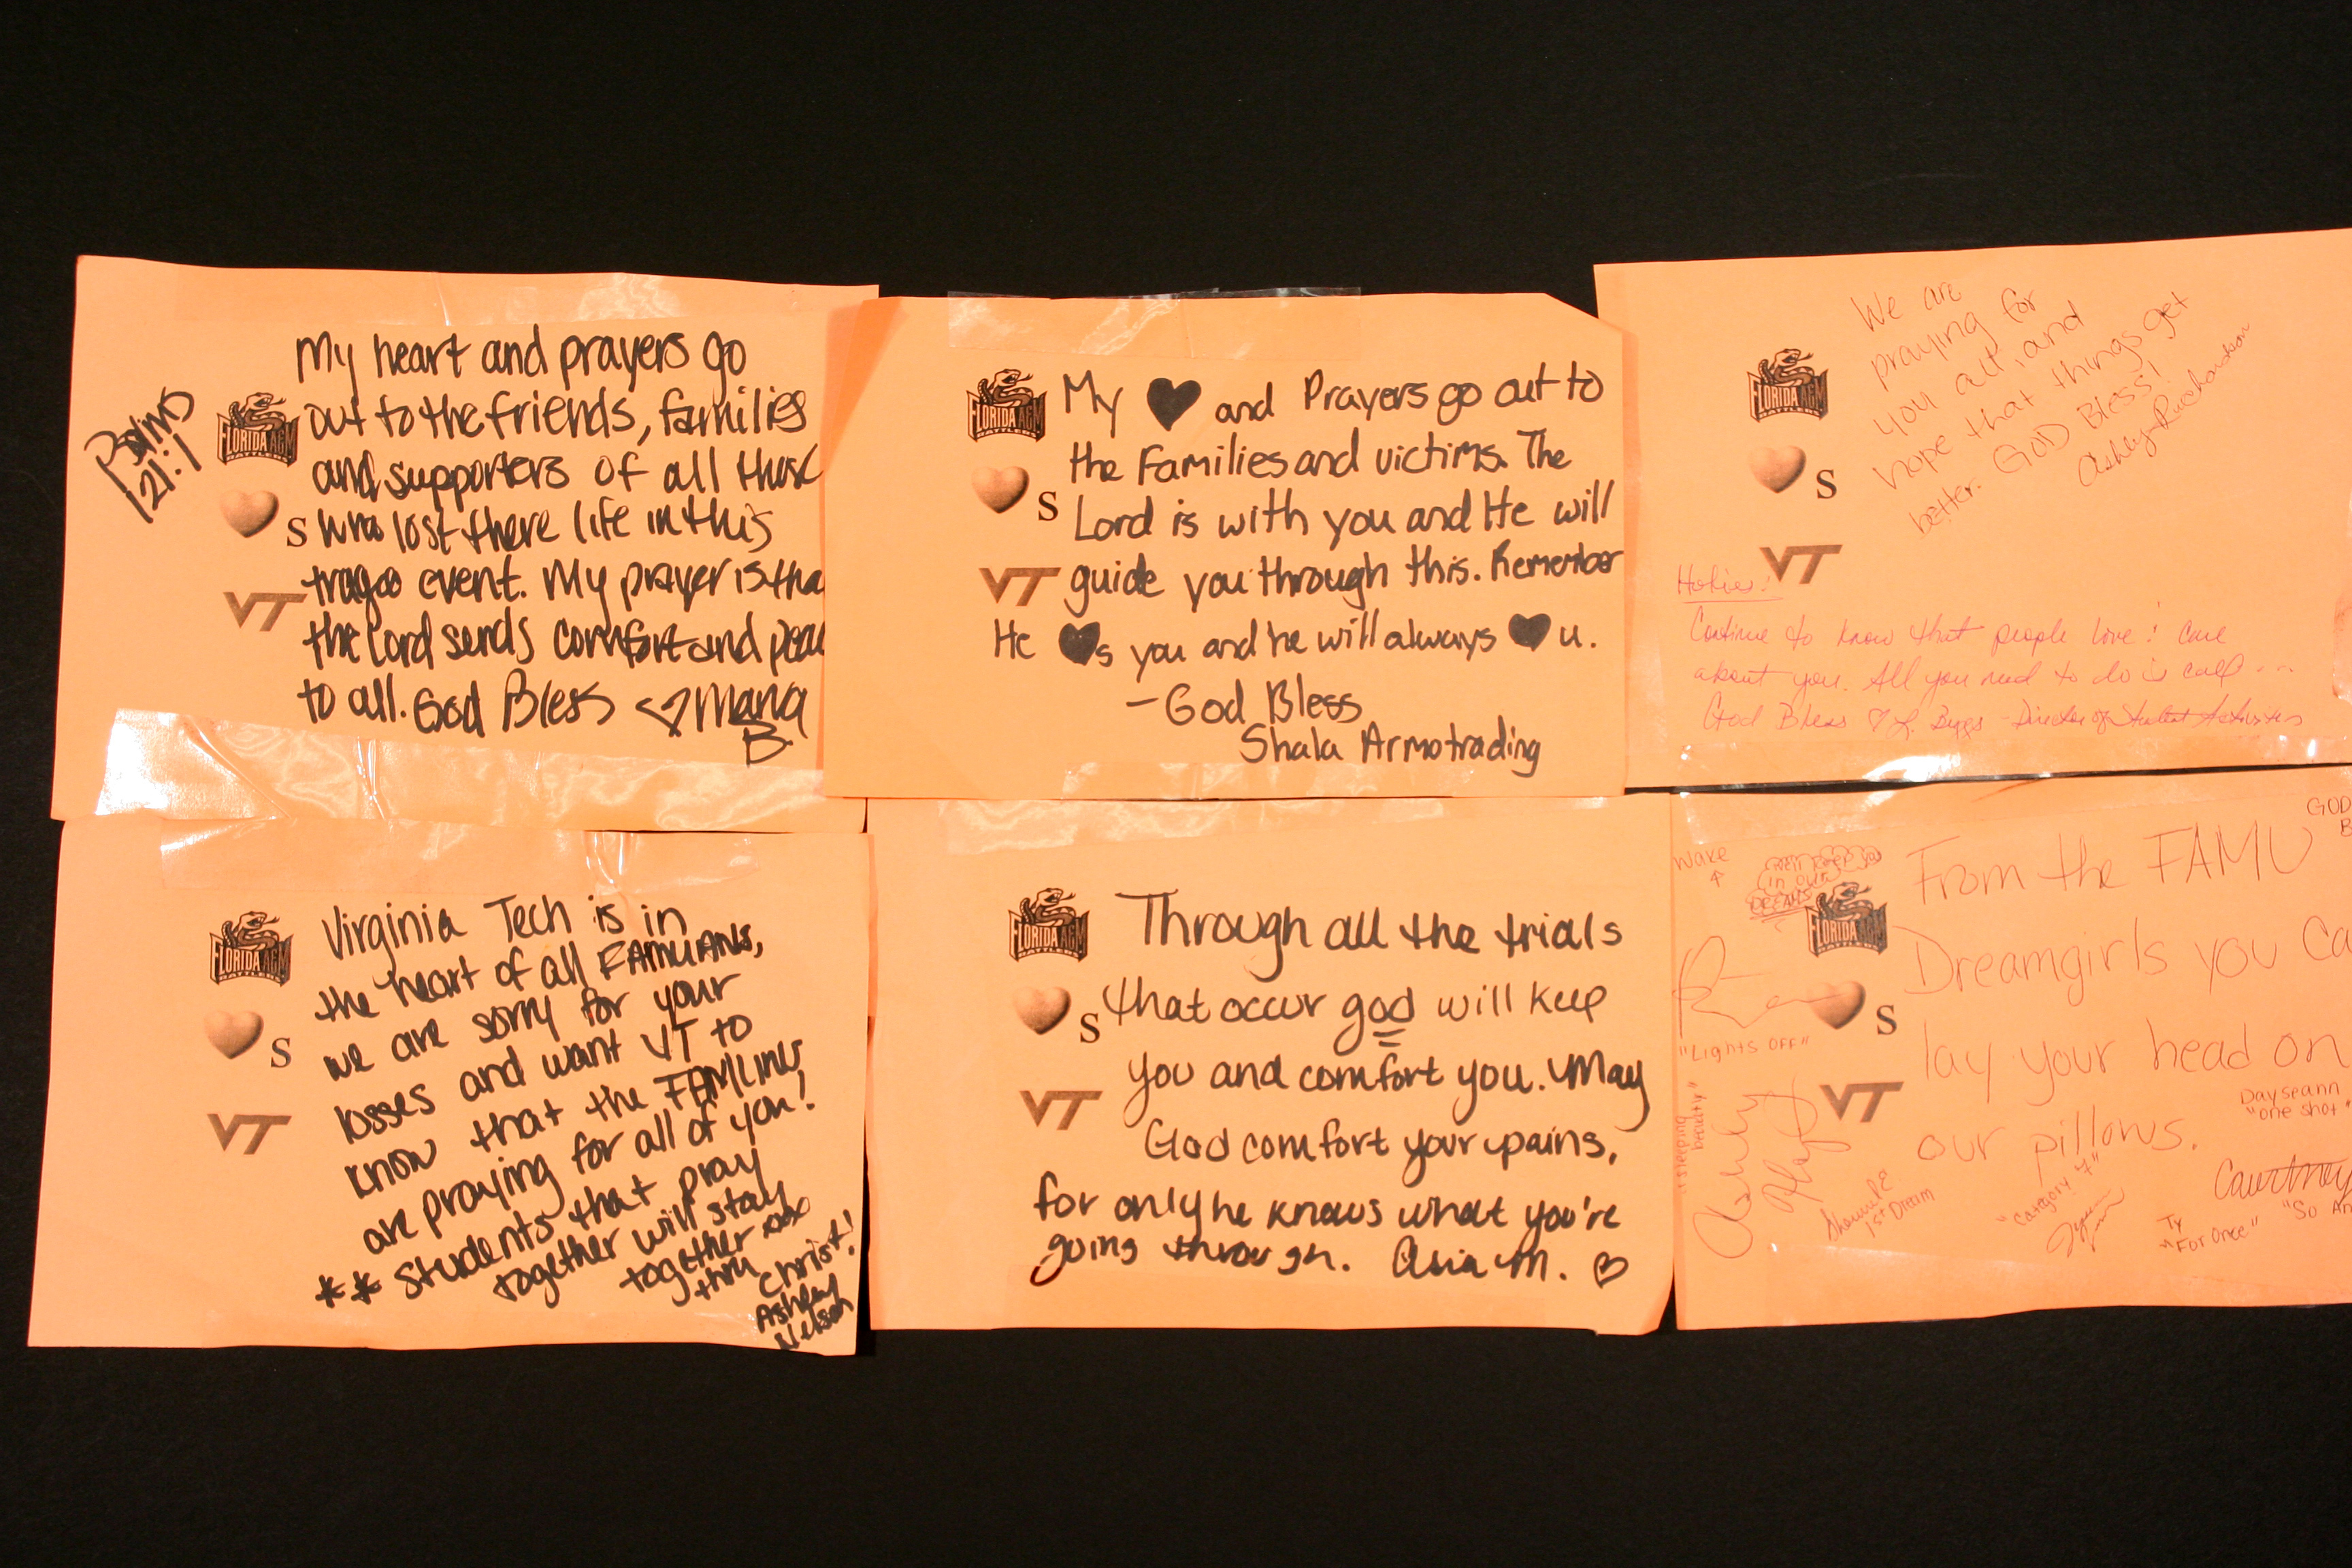 Psalms
121:1
FLORIDA A&M
S
VT
My heart and prayers go
out to the friends, families
and supporters of all those
who lost there life in this
event. My prayer is tha
the Lord sends comfort and peac
to all. God Bless Mana
B.
FLORIDA A&M
S
VT
My ♥ and Prayers go out to
the Families and victims. The
Lord is with you and He will
guide you through this. Remember
He ♥s you and he will always ♥ u.
- God Bless
Shala Armotrading
FLORIDA A&M
S
VT
We are
praying for
you all, and
hope that things get
better. GOD Bless!
Ashley Richardson
Hokies:
Continue to know that people love & care
about you. All you need to do is call ...
God Bless ♥ L. Biggs - Director of Student Activities
FLORIDA A&M
S
VT
Virginia Tech is in
the heart of all FAMUANS,
we are sorry for your
losses and want VT to
know that the
are praying for all of you!
** Students that pray
together will stay
together
thru Christ!
Ashley
Nelson
FLORIDA A&M
S
VT
Through all the trials
that occur god will keep
you and comfort you. May
God comfort your pains,
for only he knows what you're
going through. Asia M. ♡
FLORIDA A&M
S
VT
GOD
B
Wake
in our
DREAMS
From the FAMU
Dreamgirls you Ca
lay your head on
our pillows.
"Lights OFF"
"sleeping
beauty"
Ashly
1st Dream
"Category 7"
Ty
"For Once"
Dayseann
"one shot"
Courtney
"So Am